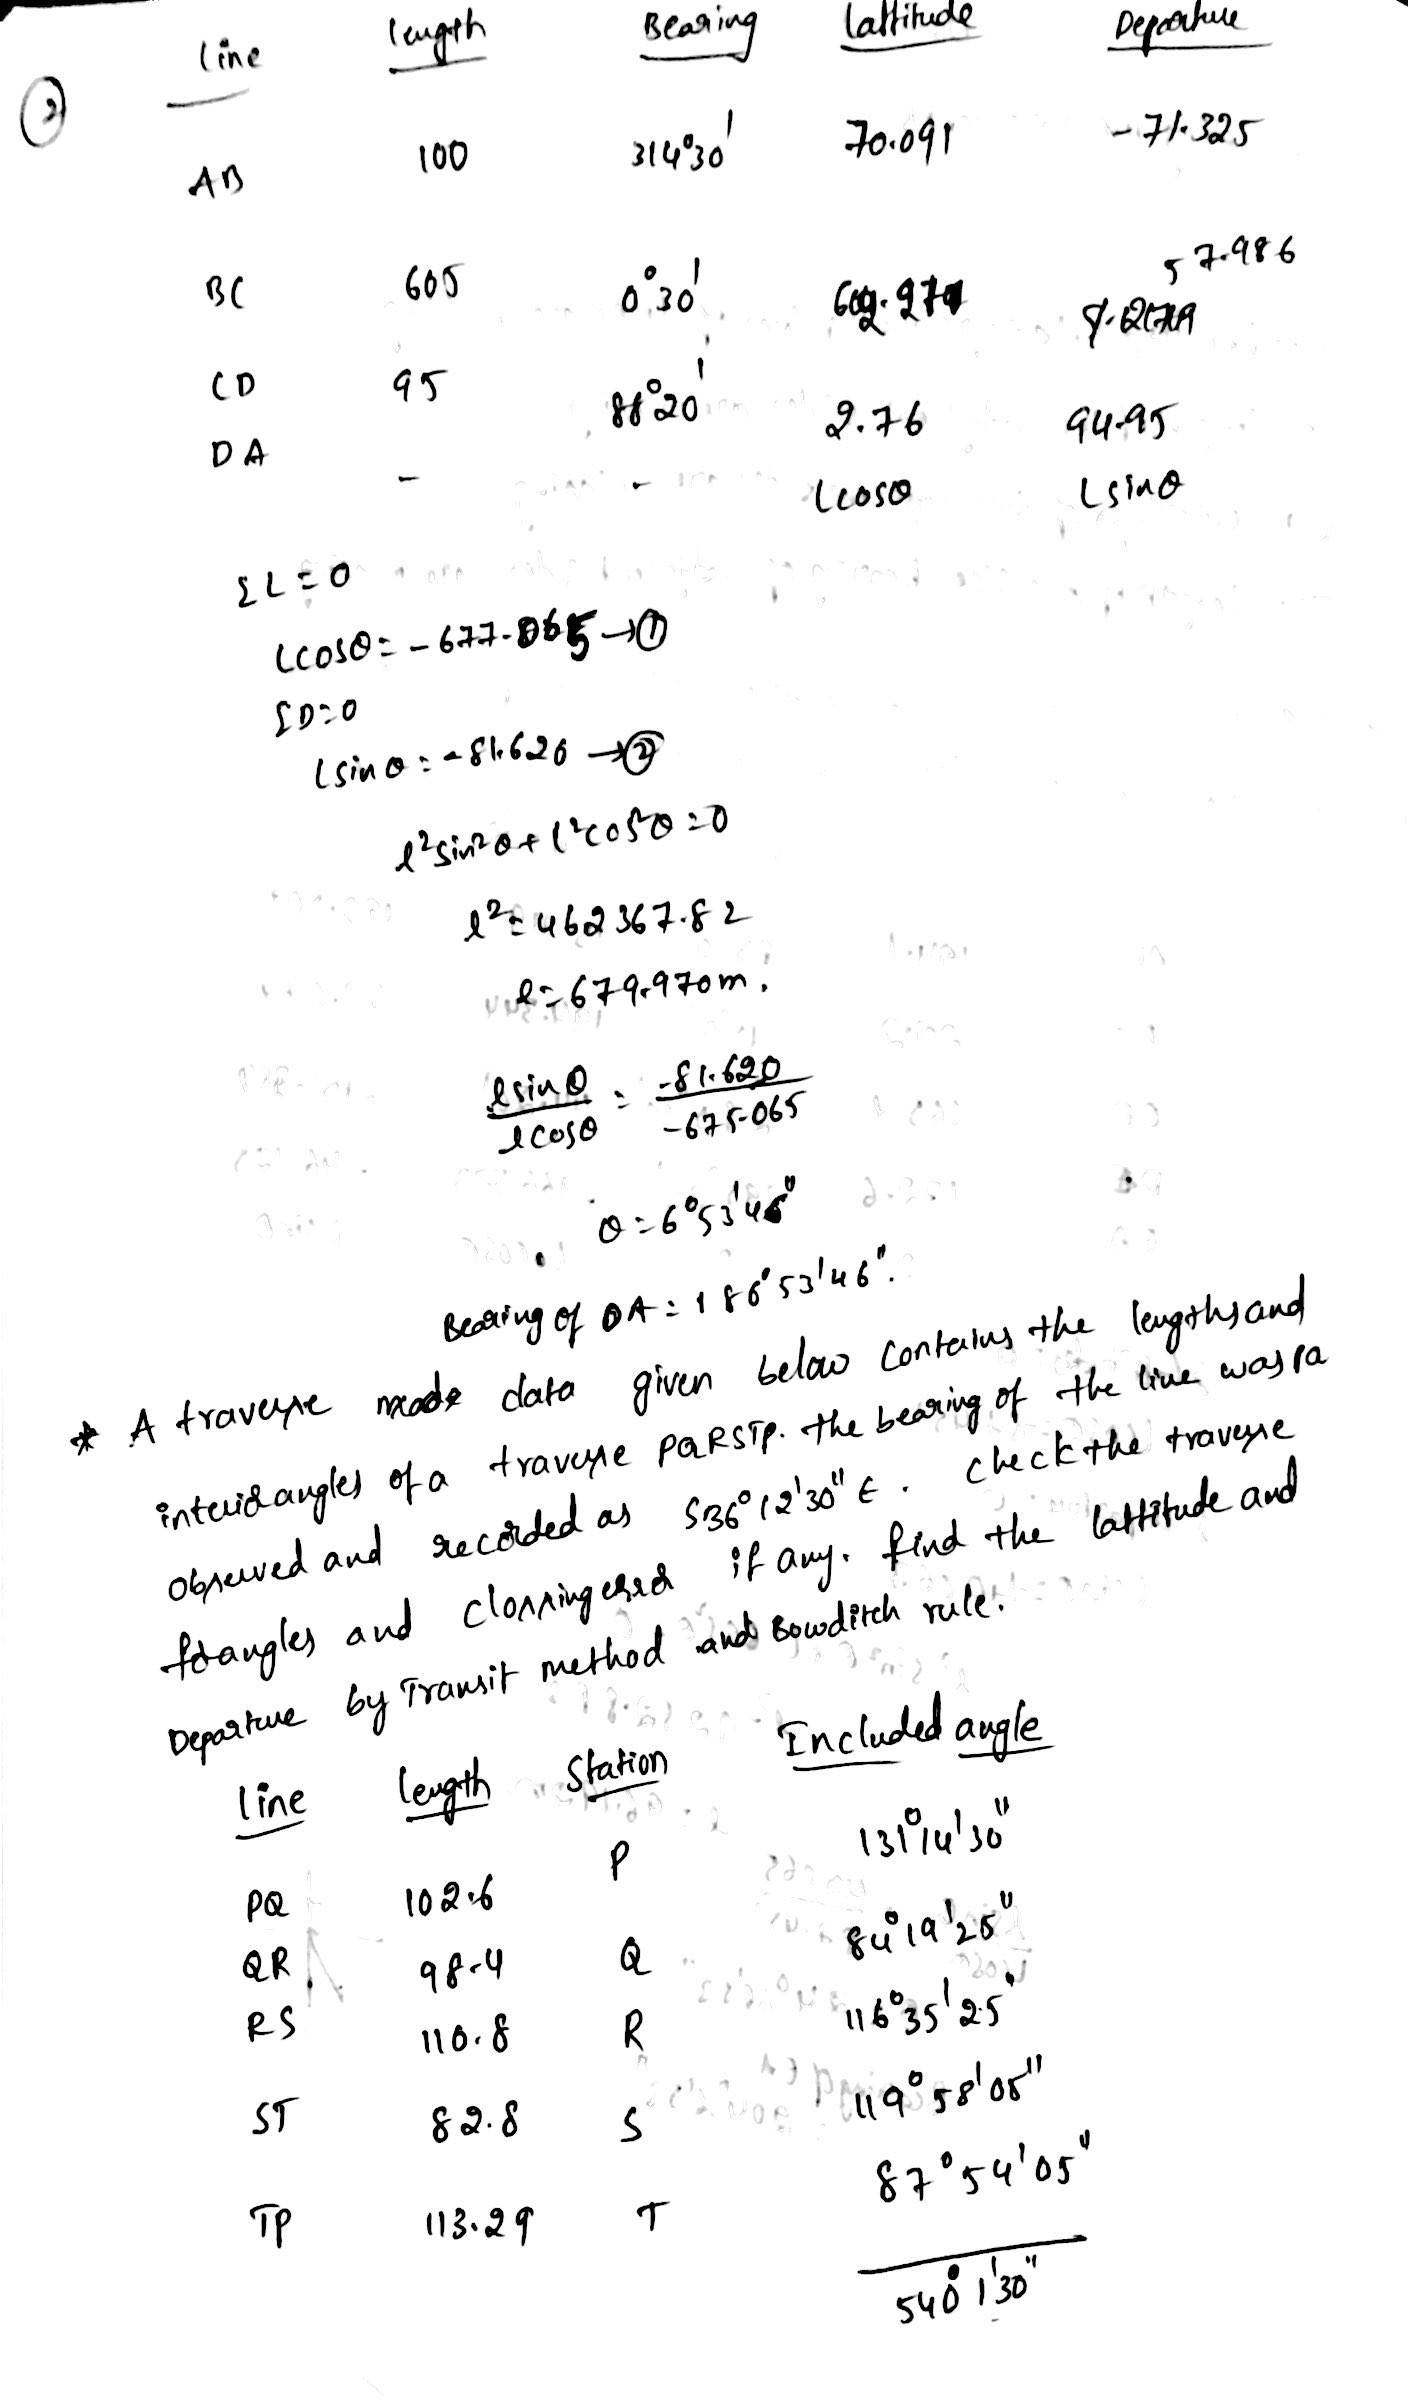 ②
line length Bearing lattitude Departure
AB 100 314°30' 70.091 -71.325
57.986
BC 605 0°30'
CD 95 88°20' 2.76 94.95
DA - - lcosθ lsinθ
ΣL=0
lcosθ = -677.065 →①
ΣD=0
lsinθ = -81.620 →②
l²sin²θ + l²cos²θ = 0
l² = 462367.82
l = 679.970m.
lsinθ/lcosθ = -81.620/-675.065
θ = 6°53'46"
Bearing of DA = 186°53'46".
* A traverse made data given below contains the lengths and
interior angles of a traverse PQRSTP. the bearing of the line was Pa
observed and recorded as S36°12'30" E. check the traverse
for angles and clossing error if any. find the lattitude and
Departure by Transit method and Bowditch rule.
line length Station Included angle
P 131°14'30"
PQ 102.6
Q 84°19'25"
QR 98.4
R 116°35'25"
RS 110.8
S 119°58'05"
ST 82.8
T 87°54'05"
TP 113.29
540°1'30"